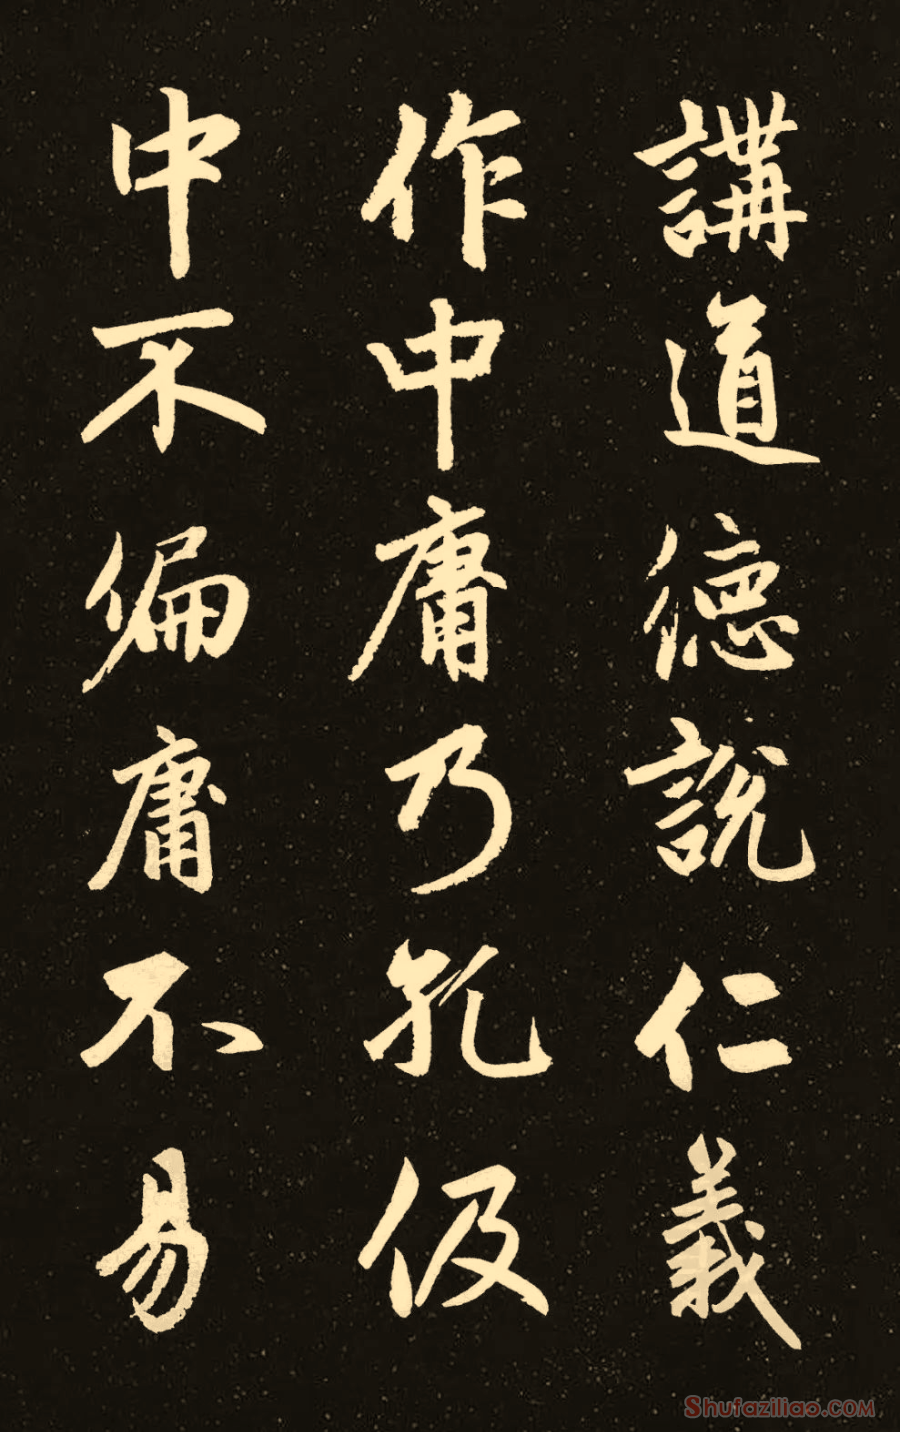 講道德說仁義
作中庸乃孔伋
中不偏庸不易
Shufaziliao.COM